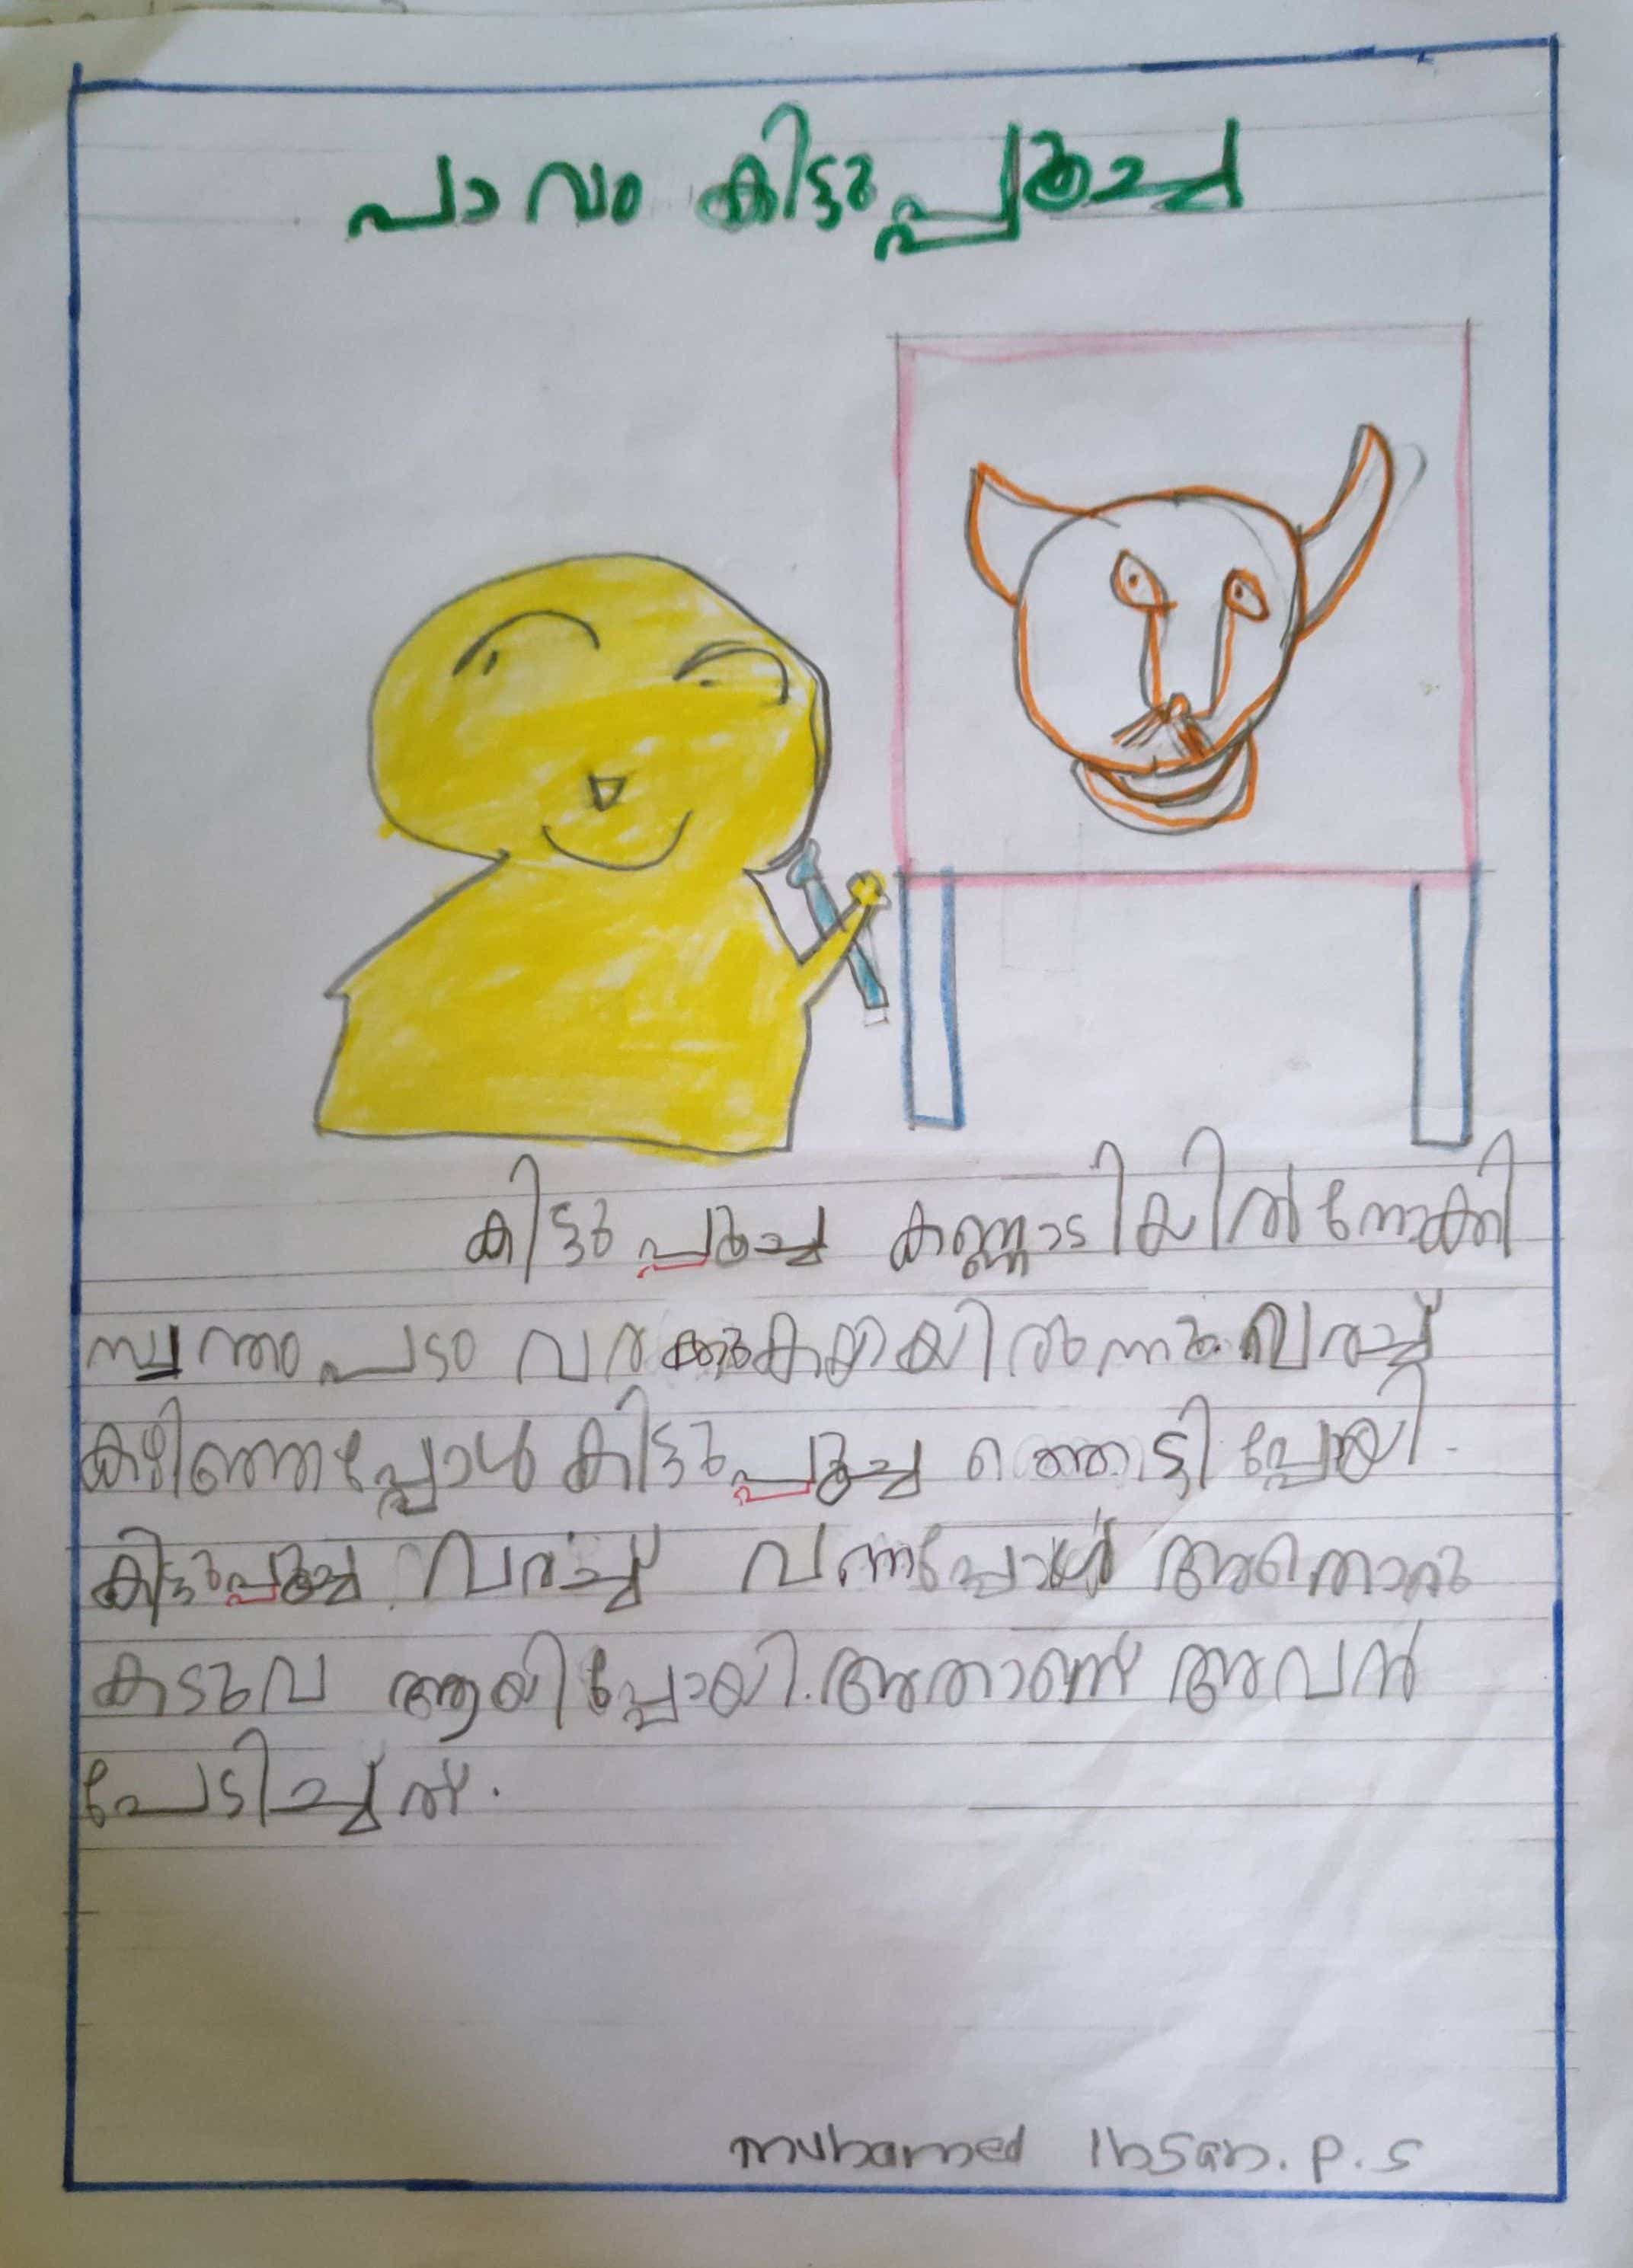 പാവം കിട്ടുപ്പൂച്ച
കിട്ടുപ്പൂച്ച കണ്ണാടിയിൽ നോക്കി
സ്വന്തം പടം വരക്കുകയായിരുന്നു. വരച്ച്
കഴിഞ്ഞപ്പോൾ കിട്ടുപ്പൂച്ച ഞെട്ടിപ്പോയി.
കിട്ടുപ്പൂച്ച വരച്ച് വന്നപ്പോൾ അതൊരു
കടുവ ആയിപ്പോയി. അതാണ് അവൻ
പേടിച്ചത്.
muhamed Ihsan. P. S